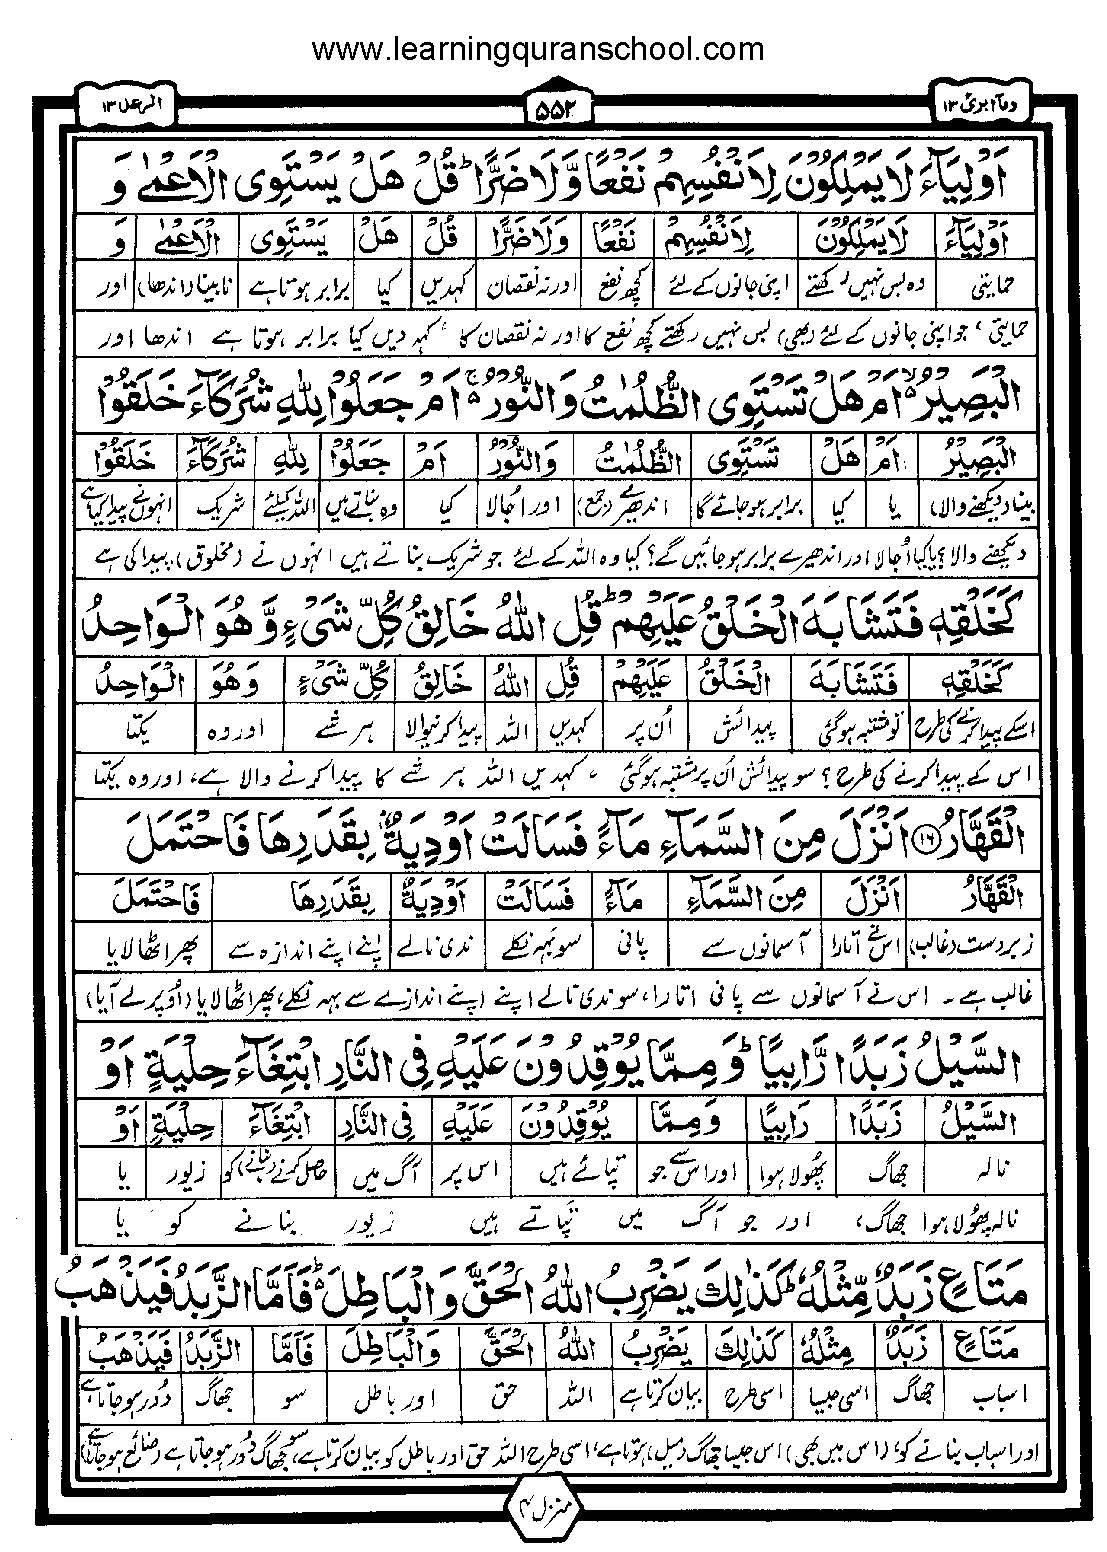 www.learningquranschool.com
وما ابرئ ۱۳ ۵۵۲ الرعد ۱۳
اَوْلِيَآءَ لَا يَمْلِكُوْنَ لِاَنْفُسِهِمْ نَفْعًا وَّلَا ضَرًّا ؕ قُلْ هَلْ يَسْتَوِى الْاَعْمٰى وَ
اَوْلِيَآءَ لَا يَمْلِكُوْنَ لِاَنْفُسِهِمْ نَفْعًا وَلَا ضَرًّا قُلْ هَلْ يَسْتَوِى الْاَعْمٰى وَ
حمایتی وہ بس نہیں رکھتے اپنی جانوں کے لئے کچھ نفع اور نہ نقصان کہدیں کیا برابر ہوتا ہے نابینا (اندھا) اور
حمایتی، جو اپنی جانوں کے لئے (بھی) بس نہیں رکھتے کچھ نفع کا اور نہ نقصان کا، کہہ دیں کیا برابر ہوتا ہے اندھا اور
الْبَصِيْرُ ۙ اَمْ هَلْ تَسْتَوِى الظُّلُمٰتُ وَالنُّوْرُ ۚ اَمْ جَعَلُوْا لِلّٰهِ شُرَكَآءَ خَلَقُوْا
الْبَصِيْرُ اَمْ هَلْ تَسْتَوِى الظُّلُمٰتُ وَالنُّوْرُ اَمْ جَعَلُوْا لِلّٰهِ شُرَكَآءَ خَلَقُوْا
بینا (دیکھنے والا) یا کیا برابر ہو جائے گا اندھیرے (جمع) اور اُجالا کیا وہ بناتے ہیں اللہ کیلئے شریک انہوں نے پیدا کیا ہے
دیکھنے والا؟ یا کیا اُجالا اور اندھیرے برابر ہو جائیں گے؟ کیا وہ اللہ کے لئے جو شریک بناتے ہیں انہوں نے (مخلوق) پیدا کی ہے
كَخَلْقِهٖ فَتَشَابَهَ الْخَلْقُ عَلَيْهِمْ ؕ قُلِ اللّٰهُ خَالِقُ كُلِّ شَیْءٍ وَّهُوَ الْوَاحِدُ
كَخَلْقِهٖ فَتَشَابَهَ الْخَلْقُ عَلَيْهِمْ قُلِ اللّٰهُ خَالِقُ كُلِّ شَیْءٍ وَهُوَ الْوَاحِدُ
اسکے پیدا کرنے کی طرح تو مشتبہ ہو گئی پیدائش اُن پر کہدیں اللہ پیدا کرنیوالا ہر شے اور وہ یکتا
اس کے پیدا کرنے کی طرح؟ سو پیدائش اُن پر مشتبہ ہو گئی، کہدیں اللہ ہر شے کا پیدا کرنے والا ہے، اور وہ یکتا
الْقَهَّارُ ۱۶ اَنْزَلَ مِنَ السَّمَآءِ مَآءً فَسَالَتْ اَوْدِيَةٌۢ بِقَدَرِهَا فَاحْتَمَلَ
الْقَهَّارُ اَنْزَلَ مِنَ السَّمَآءِ مَآءً فَسَالَتْ اَوْدِيَةٌ بِقَدَرِهَا فَاحْتَمَلَ
زبردست (غالب) اس نے اُتارا آسمانوں سے پانی سو بہہ نکلے ندی نالے اپنے اپنے اندازہ سے پھر اٹھا لایا
غالب ہے۔ اس نے آسمانوں سے پانی اتارا، سو ندی نالے اپنے اپنے اندازے سے بہہ نکلے، پھر اٹھا لایا (اُوپر لے آیا)
السَّيْلُ زَبَدًا رَّابِيًا ؕ وَمِمَّا يُوْقِدُوْنَ عَلَيْهِ فِى النَّارِ ابْتِغَآءَ حِلْيَةٍ اَوْ
السَّيْلُ زَبَدًا رَابِيًا وَمِمَّا يُوْقِدُوْنَ عَلَيْهِ فِى النَّارِ ابْتِغَآءَ حِلْيَةٍ اَوْ
نالہ جھاگ پھُولا ہوا اور اس سے جو تپائے ہیں اس پر آگ میں حاصل کرنے (بنانے) کو زیور یا
نالہ پھُولا ہوا جھاگ، اور جو آگ میں تپاتے ہیں زیور بنانے کو یا
مَتَاعٍ زَبَدٌ مِّثْلُهٗ ؕ كَذٰلِكَ يَضْرِبُ اللّٰهُ الْحَقَّ وَالْبَاطِلَ ؕ فَاَمَّا الزَّبَدُ فَيَذْهَبُ
مَتَاعٍ زَبَدٌ مِثْلُهٗ كَذٰلِكَ يَضْرِبُ اللّٰهُ الْحَقَّ وَالْبَاطِلَ فَاَمَّا الزَّبَدُ فَيَذْهَبُ
اسباب جھاگ اسی جیسا اسی طرح بیان کرتا ہے اللہ حق اور باطل سو جھاگ دُور ہو جاتا ہے
اور اسباب بنانے کو، (اس میں بھی) اس جیسا جھاگ (میل) ہوتا ہے، اسی طرح اللہ حق اور باطل کو بیان کرتا ہے، سو جھاگ دُور ہو جاتا ہے (ضائع ہو جاتا ہے)
منزل ۳